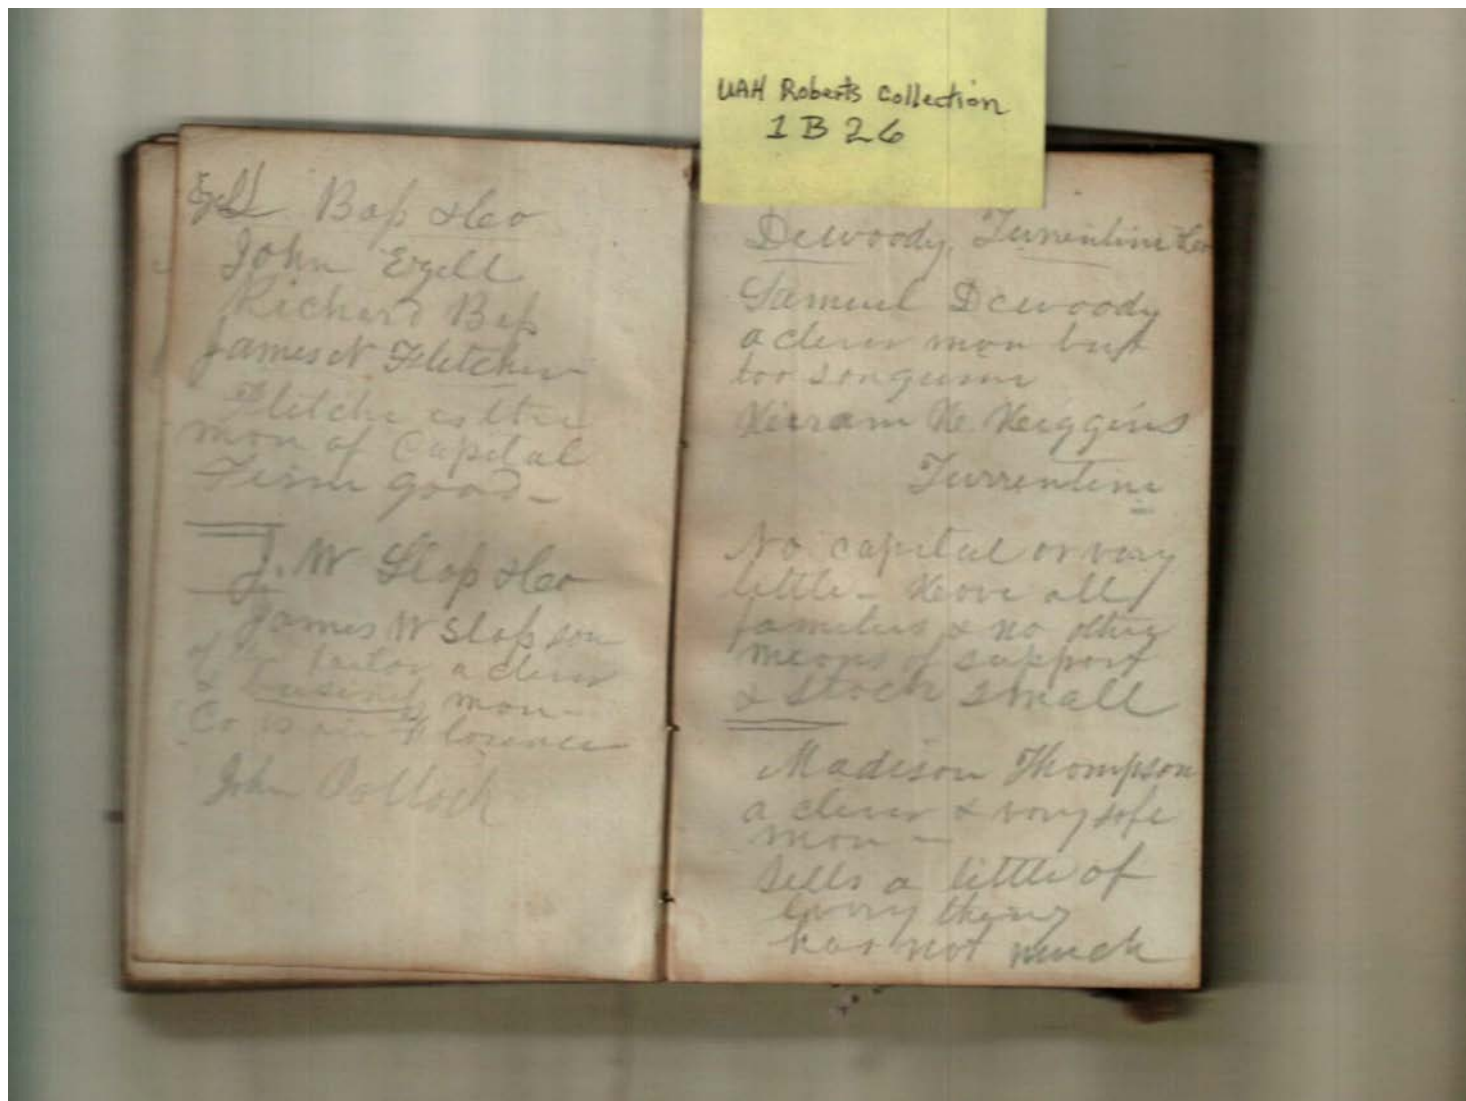 UAH Roberts Collection
1B26
Ezell Bass & Co
John Ezell
Richard Bass
James N Fletcher
Fletcher is the
man of Capital
Firm good —
J. W Sloss & Co
James W Sloss son
of the a clever
& business man —
Co is in Florence
John Pollock
Dewoody, Turrentine & Co
Samuel Dewoody
a clever man but
too sanguine
Hirram H. Higgins
Turrentine
No capital or very
little — Have all
families & no other
means of support
& stock small
Madison Thompson
a clever & very safe
man —
Sells a little of
every thing
has not much